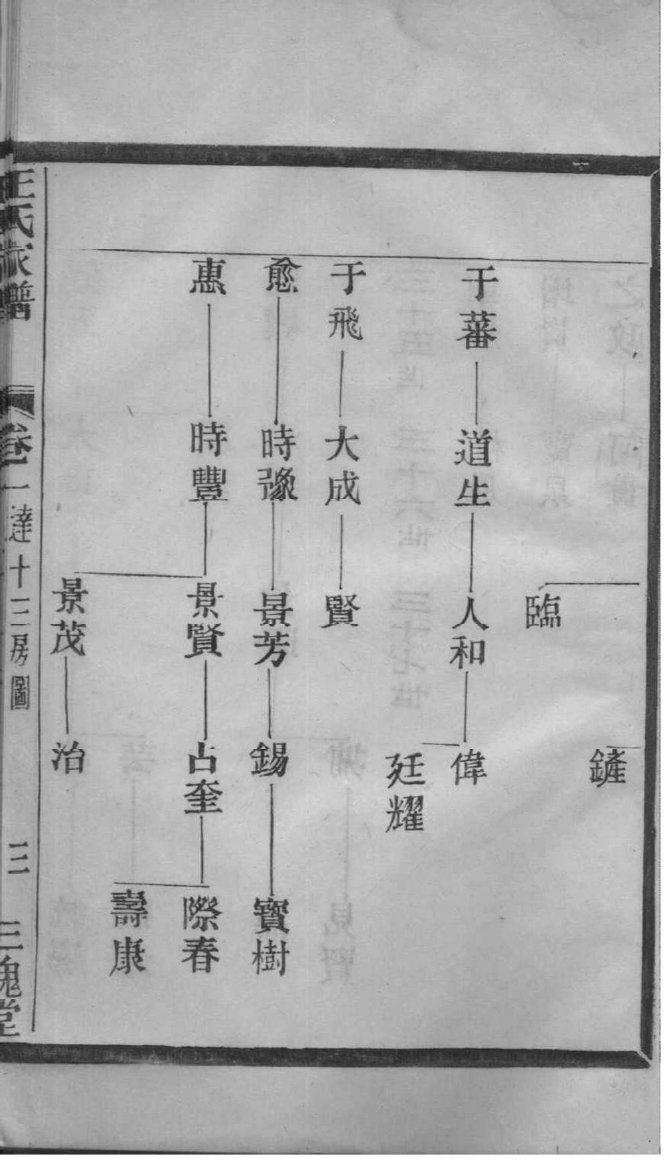 鏟
臨
于蕃 道生 人和 偉
廷耀
于飛 大成 賢
愈 時豫 景芳 錫 寶樹
惠 時豐 景賢 占奎 際春
壽康
景茂 治
王氏家譜 卷一 達十三房圖 三 三槐堂